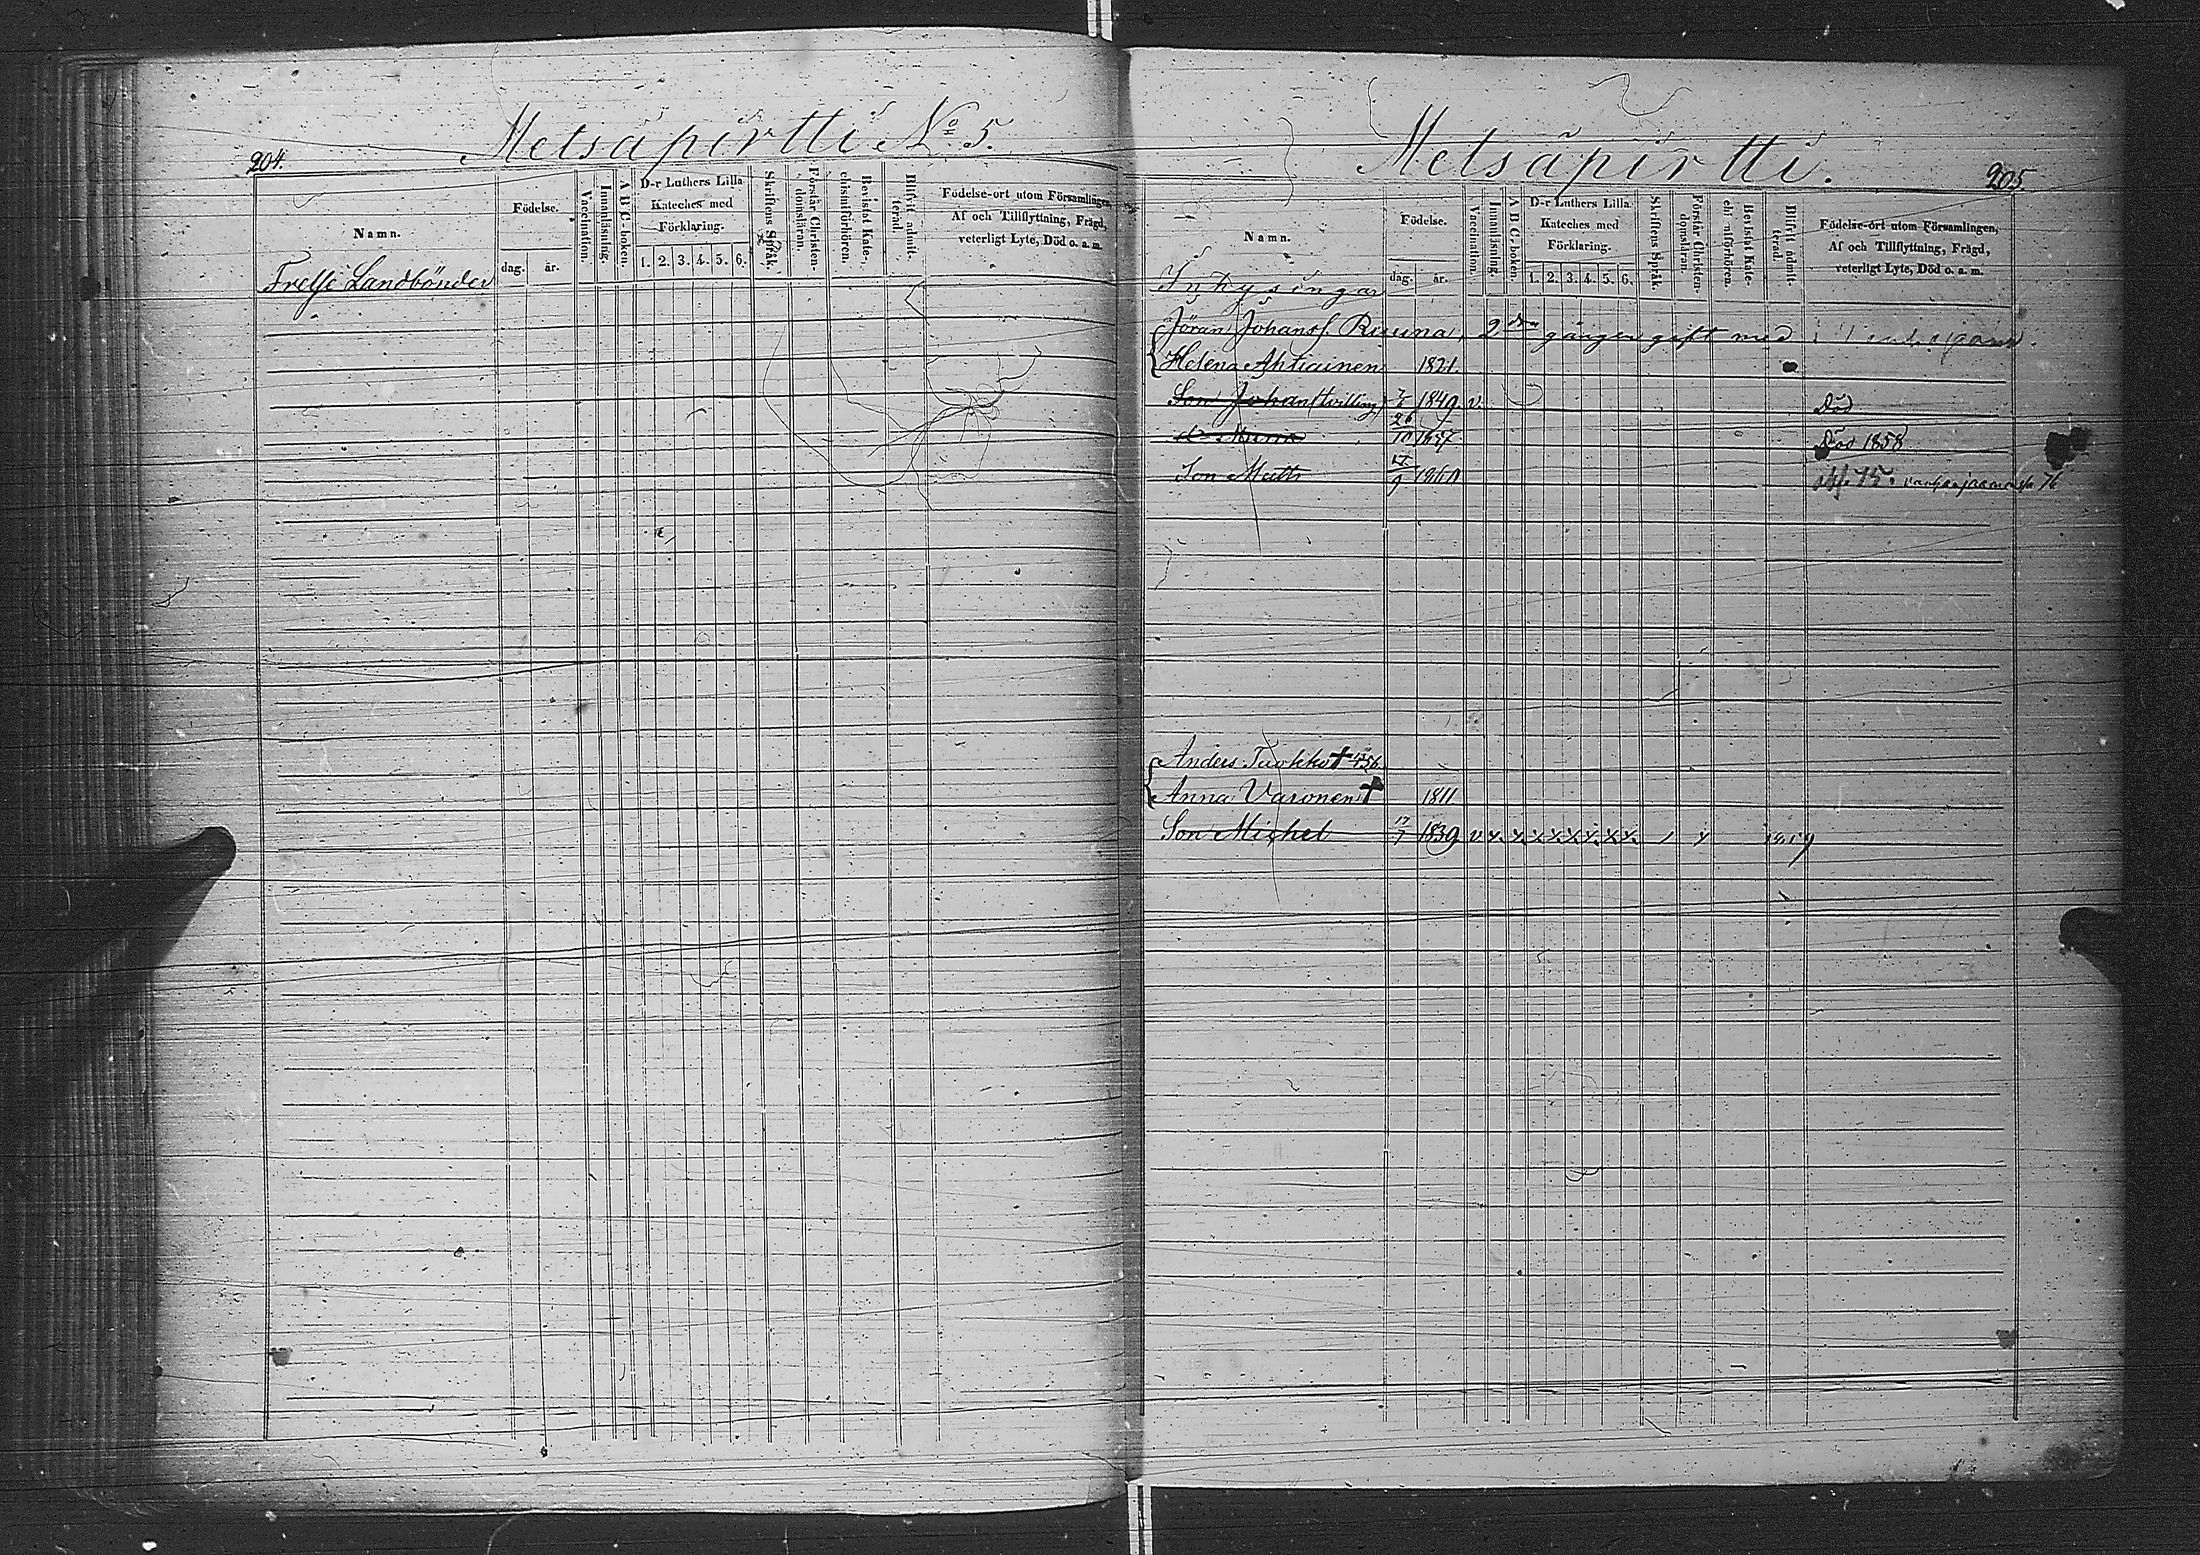 204.
Metsäpirtti No 5.
Namn.
Födelse.
dag.
år.
Vaccination.
Innanläsning.
A B C-boken.
D-r Luthers Lilla
Kateches med
Förklaring.
1. 2. 3. 4. 5. 6.
Skriftens Språk.
Förstår Christen-
domsläran.
Bevistat Kate-
chismiförhören.
Blifvit admit-
terad.
Födelse-ort utom Församlingen,
Af och Tillflyttning, Frägd,
veterligt Lyte, Död o. s. m.
Frelse Landbönder
Metsäpirtti.
205
Namn.
Födelse.
dag.
år.
Vaccination.
Innanläsning.
A B C-boken.
D-r Luthers Lilla
Kateches med
Förklaring.
1. 2. 3. 4. 5. 6.
Skriftens Språk.
Förstår Christen-
domsläran.
Bevistat Kate-
chismiförhören.
Blifvit admit-
terad.
Födelse-ort utom Församlingen,
Af och Tillflyttning, Frägd,
veterligt Lyte, Död o. s. m.
Inhysingar
Jöran Johanss. 2dra gången gift med
Helena Ahtiainen 1821.
Son Johan (tvilling) 1849. v. Död
Död 1858
Son Matts
Anders Tuokko † 56
Anna Varonen † 1811
Son Michel 1839 v x x x x x x x x